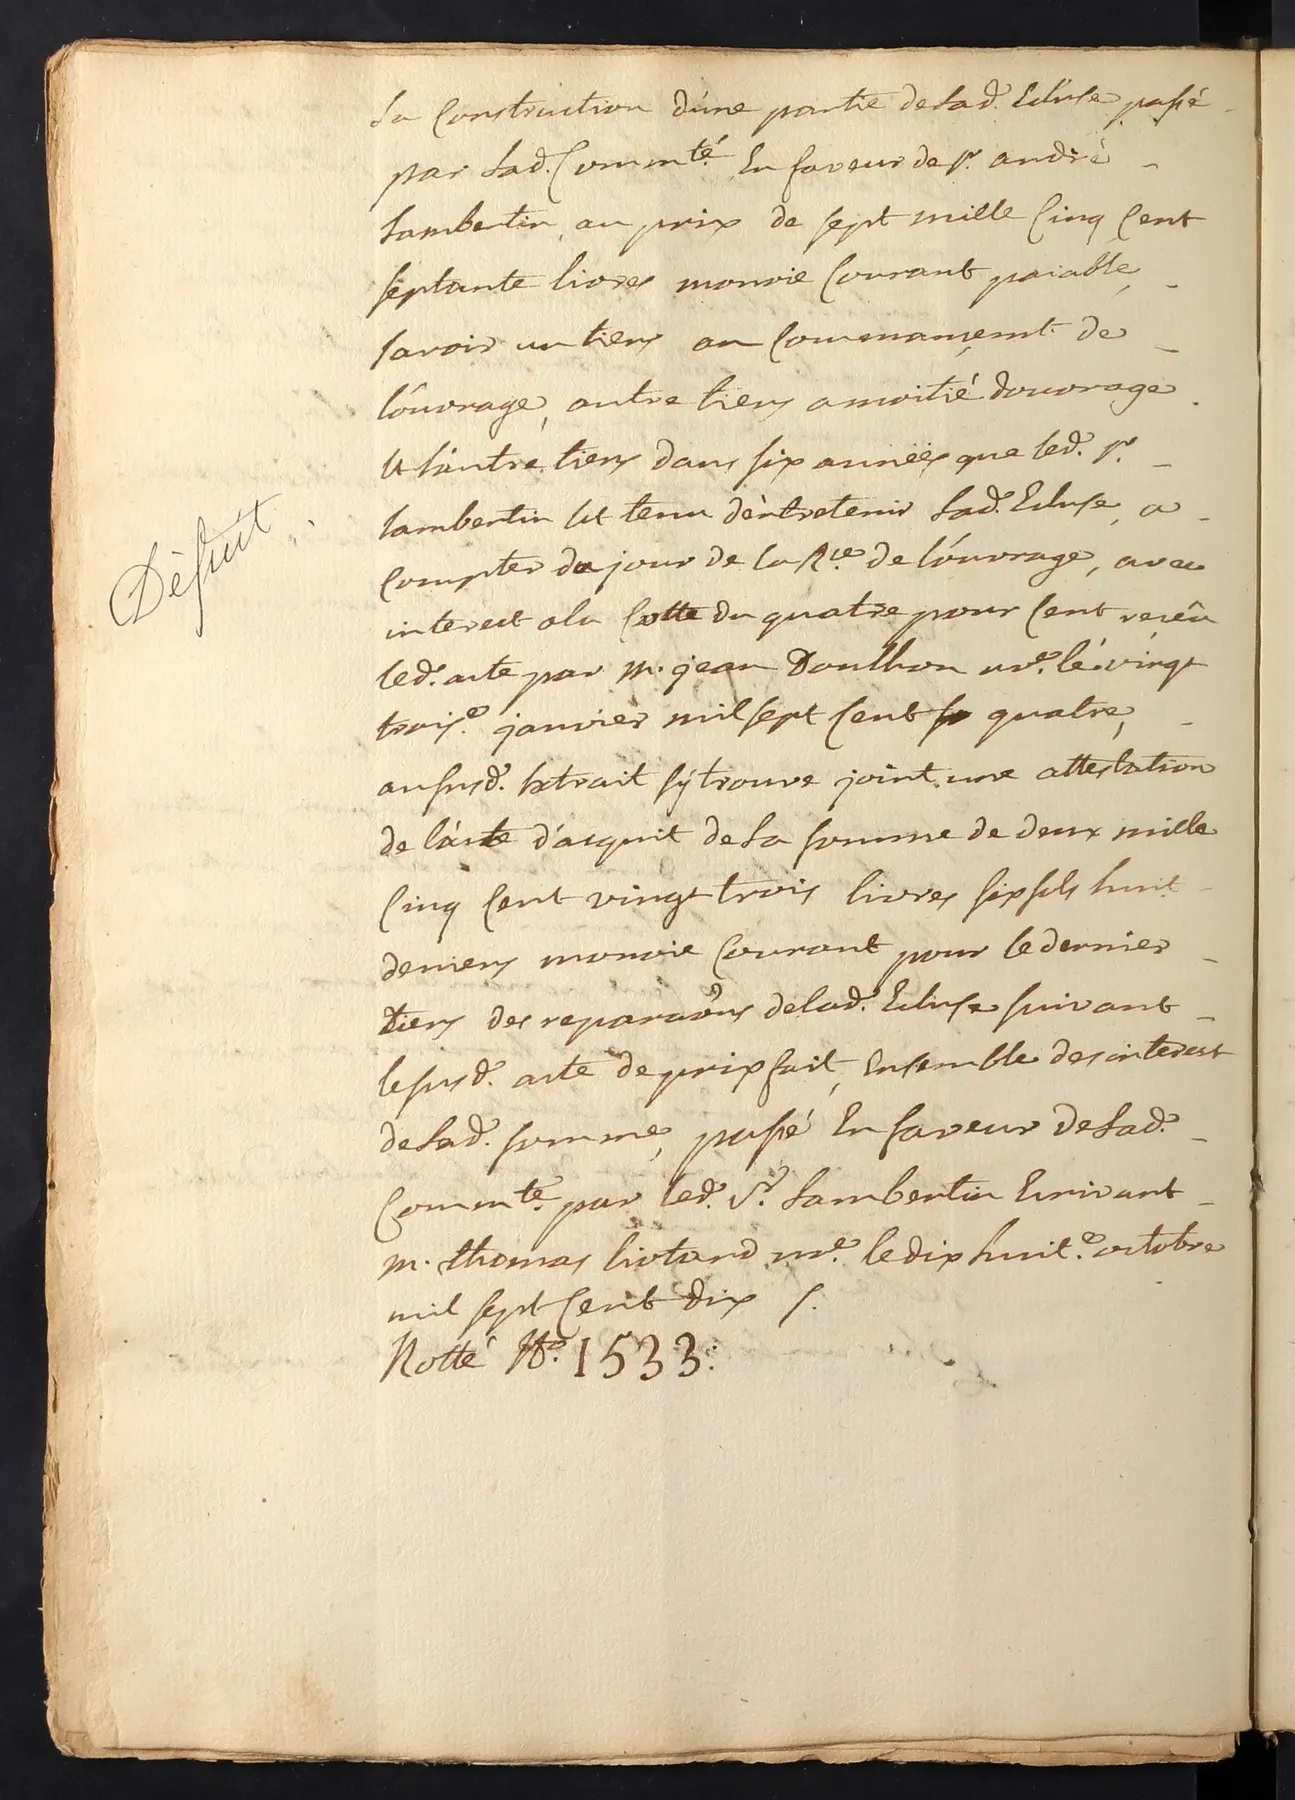 la Construction d'une partie de lad.e Ecluse passé
par lad. Commté En faveur de sr. andré
Lambertin, au prix de sept mille Cinq Cent
septante livres monoie Courant paiable,
savoir un tiers au Commançemt. de
l'ouvrage, autre tiers a moitié d'ouvrage
et l'autre tiers dans six années que led. sr.
lambertin est tenu d'entretenir lad.e Ecluse, a
Compter du jour de la Rte. de l'ouvrage, avec
interest a la Cotte du quatre pour Cent reçeu
led. acte par m. jean Doulhon nre. lé vingt
trois.e janvier mil sept Cent quatre,
Dèfuit
au susd. Extrait s'ÿ trouve joint une attestation
de l'acte d'acquit de la somme de deux mille
Cinq Cent vingt trois livres six sols huit
deniers monoie Courant pour le dernier
tiers des reparaôns de lad.e Ecluse suivant
le susd. acte de prix fait, Ensemble des interest
de lad.e somme, passé En faveur de lad.e
Commté. par led. Sr. Lambertin Ecrivant
m. thomas liotard nre. le dix huit.e octobre
mil sept Cent dix /.
Notté No. 1533: